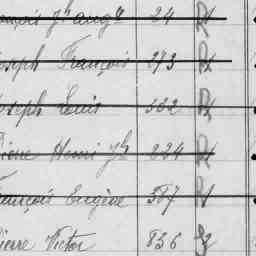 François Jh augte 24 Rt
Joseph François 273 Rt
Joseph Louis 532 Rt
Pierre Henri Jh 234 Rt
François Eugène 387 Rt
Pierre Victor 836